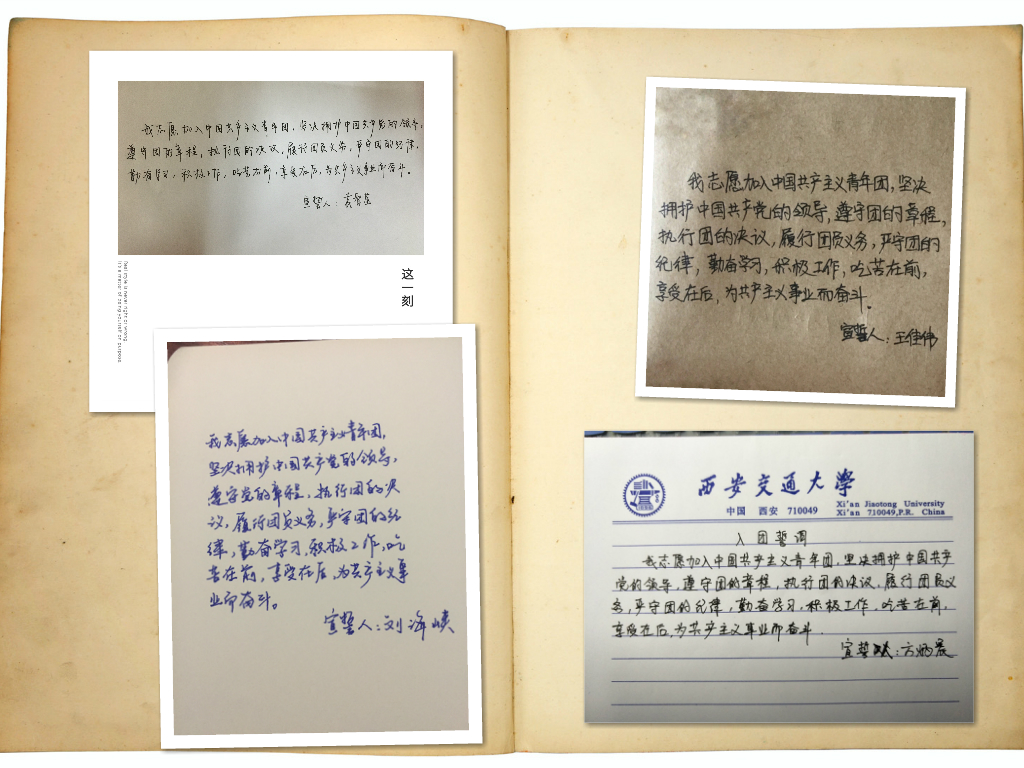 我志愿加入中国共产主义青年团，坚决拥护中国共产党的领导，
遵守团的章程，执行团的决议，履行团员义务，严守团的纪律，
勤奋学习，积极工作，吃苦在前，享受在后，为共产主义事业而奋斗。
宣誓人：
这一刻
我志愿加入中国共产主义青年团，
坚决拥护中国共产党的领导，
遵守党的章程，执行团的决
议，履行团员义务，严守团的纪
律，勤奋学习，积极工作，吃
苦在前，享受在后，为共产主义事
业而奋斗。
宣誓人：刘海峡
我志愿加入中国共产主义青年团，坚决
拥护中国共产党的领导，遵守团的章程，
执行团的决议，履行团员义务，严守团的
纪律，勤奋学习，积极工作，吃苦在前，
享受在后，为共产主义事业而奋斗。
宣誓人：王佳伟
西安交通大学
中国 西安 710049
Xi'an Jiaotong University
Xi'an 710049,P.R. China
入团誓词
我志愿加入中国共产主义青年团，坚决拥护中国共产
党的领导，遵守团的章程，执行团的决议，履行团员义
务，严守团的纪律，勤奋学习，积极工作，吃苦在前，
享受在后，为共产主义事业而奋斗．
宣誓人：方炳晨